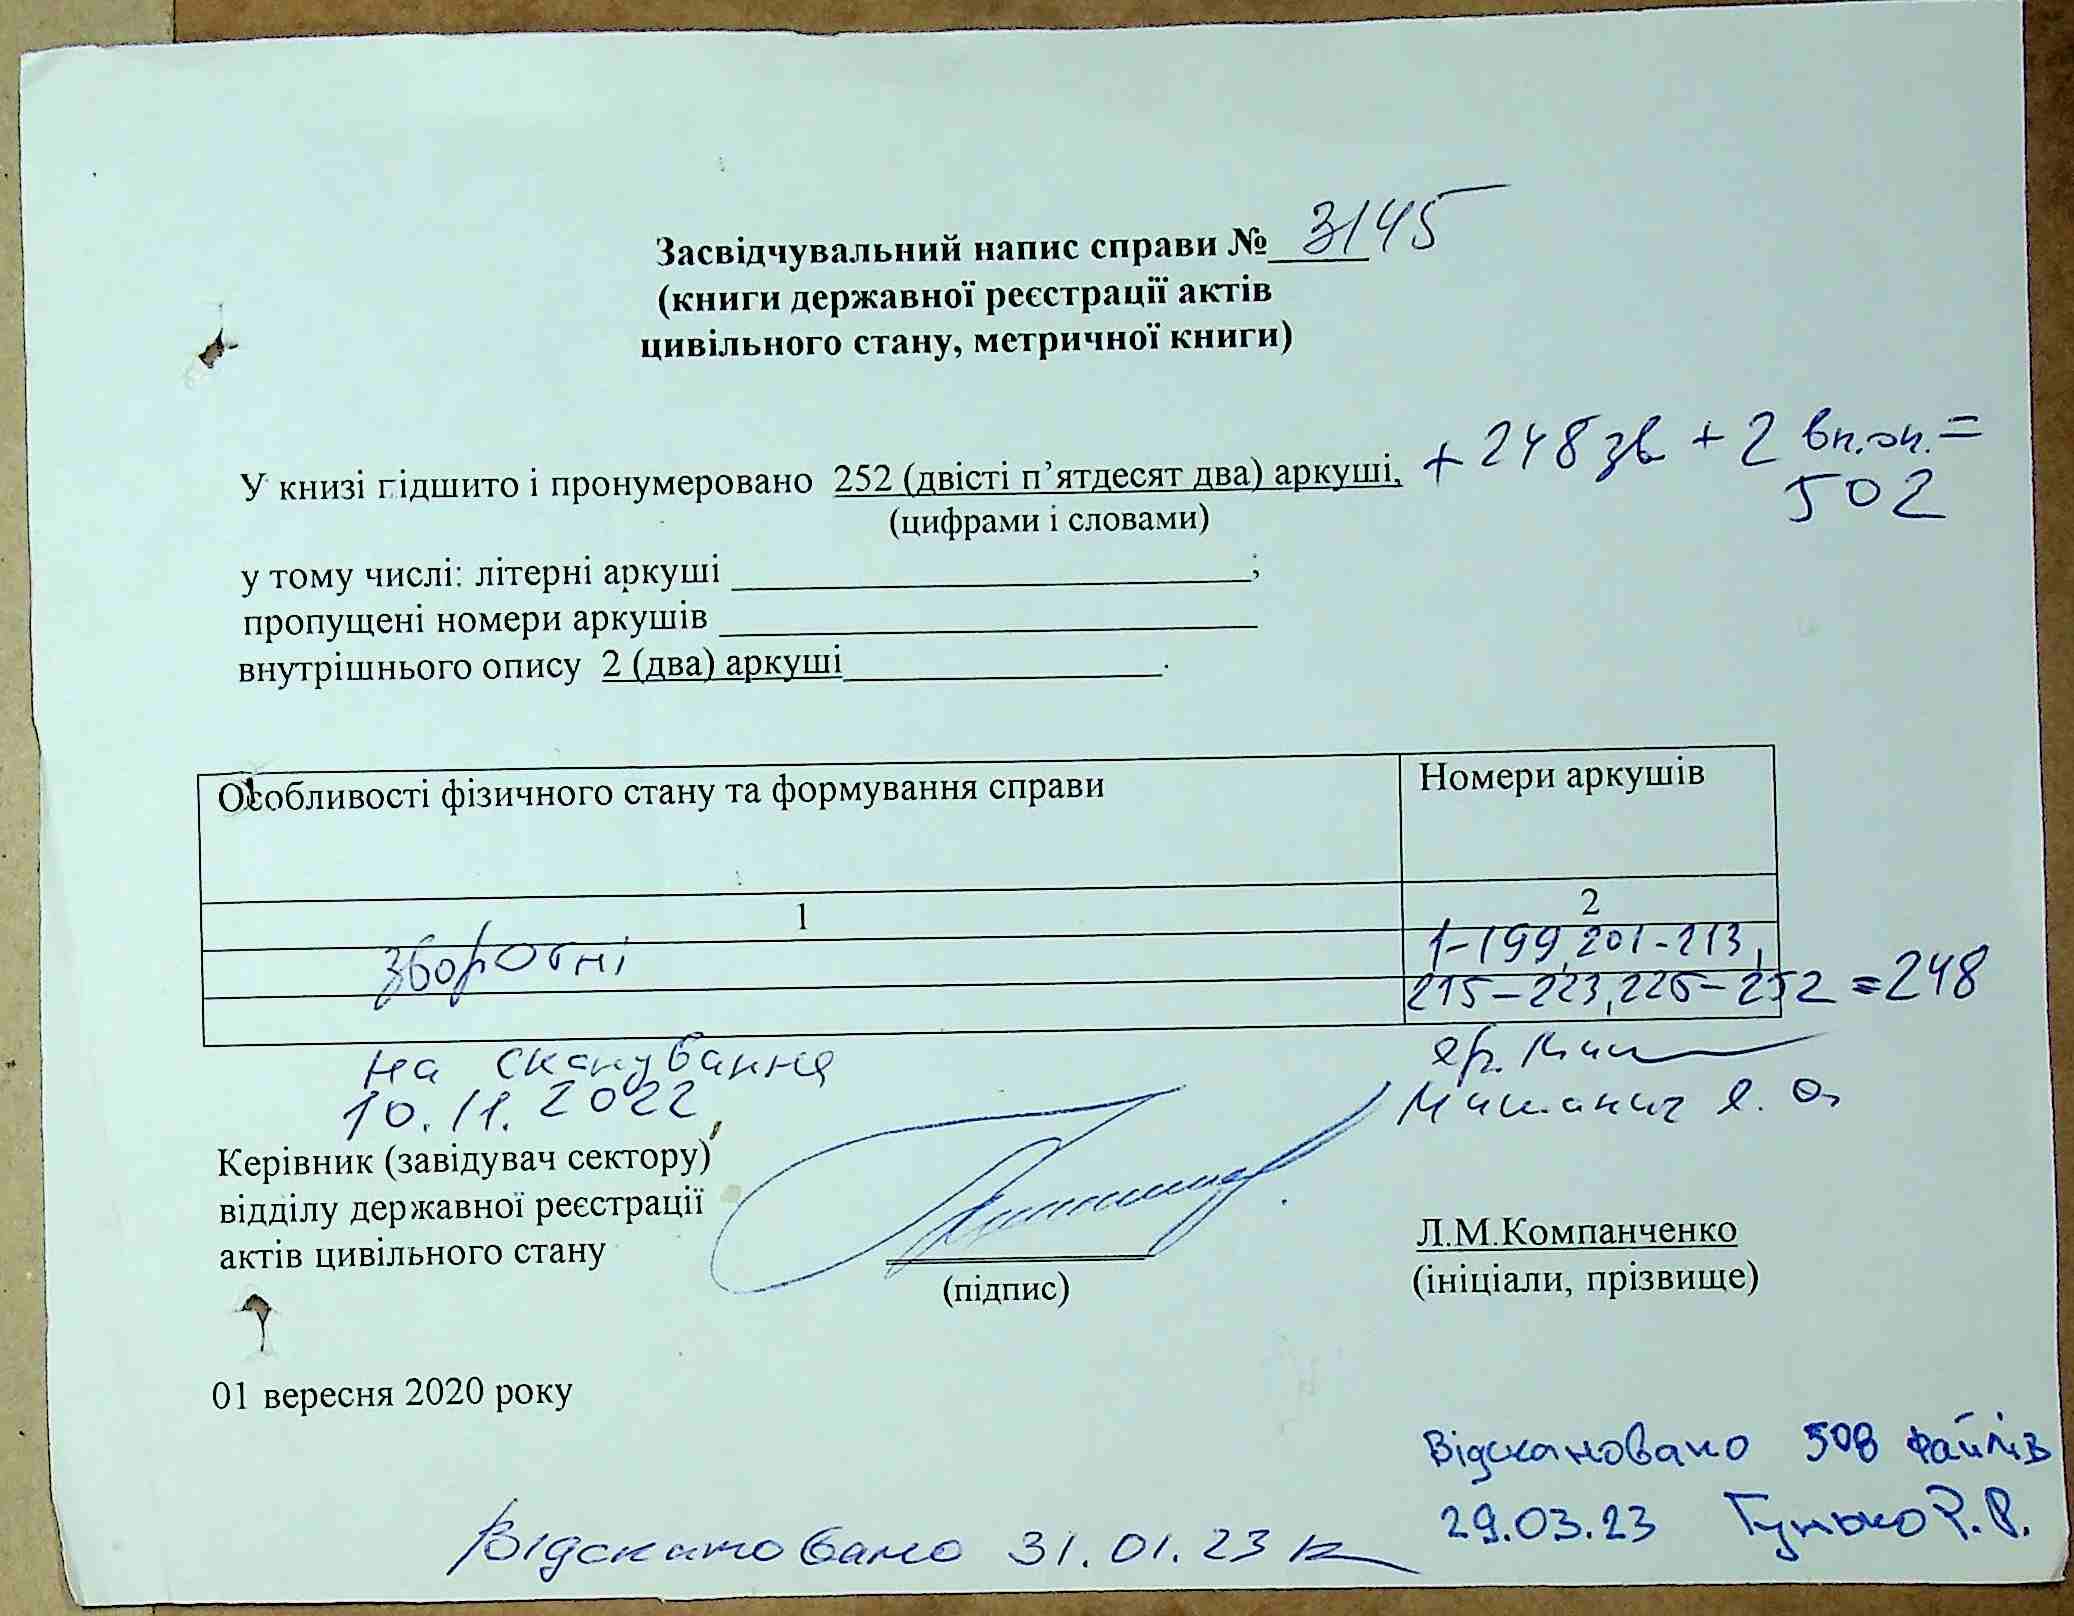 Засвідчувальний напис справи № 3145
(книги державної реєстрації актів
цивільного стану, метричної книги)
У книзі підшито і пронумеровано 252 (двісті п’ятдесят два) аркуші, + 248 зв + 2 вн.оп. =
502
(цифрами і словами)
у тому числі: літерні аркуші ;
пропущені номери аркушів
внутрішнього опису 2 (два) аркуші .
Особливості фізичного стану та формування справи Номери аркушів
1 2
зворотні 1-199, 201-213,
215-223, 226-252 = 248
на сканування
10.11.2022
Керівник (завідувач сектору)
відділу державної реєстрації
актів цивільного стану
Л.М.Компанченко
(підпис) (ініціали, прізвище)
01 вересня 2020 року
Відскановано 508 файлів
29.03.23 Гунько Р.В.
Відскановано 31.01.23